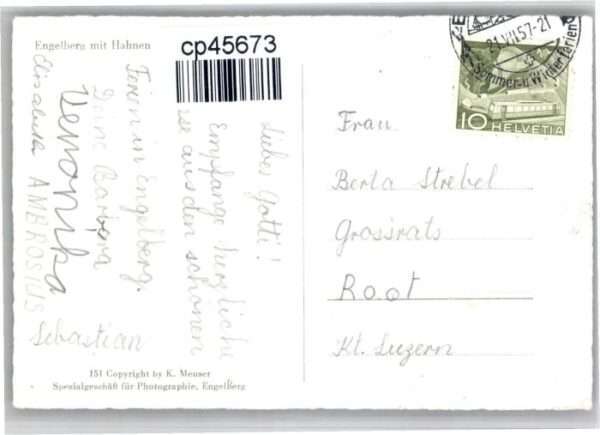 Engelberg mit Hahnen
cp45673
Liebes Gotti!
Empfange herzliche
se aus den schönen
Ferien in Engelberg.
Deine Barbara
Veronika
Elisabeth AMBROSIUS
Sebastian
151 Copyright by K. Meuser
Spezialgeschäft für Photographie, Engelberg
21.VII.57-21
Sommer- u Winterferien
10 HELVETIA
Frau
Berta Strebel
Grossrats
Root
Kt. Luzern